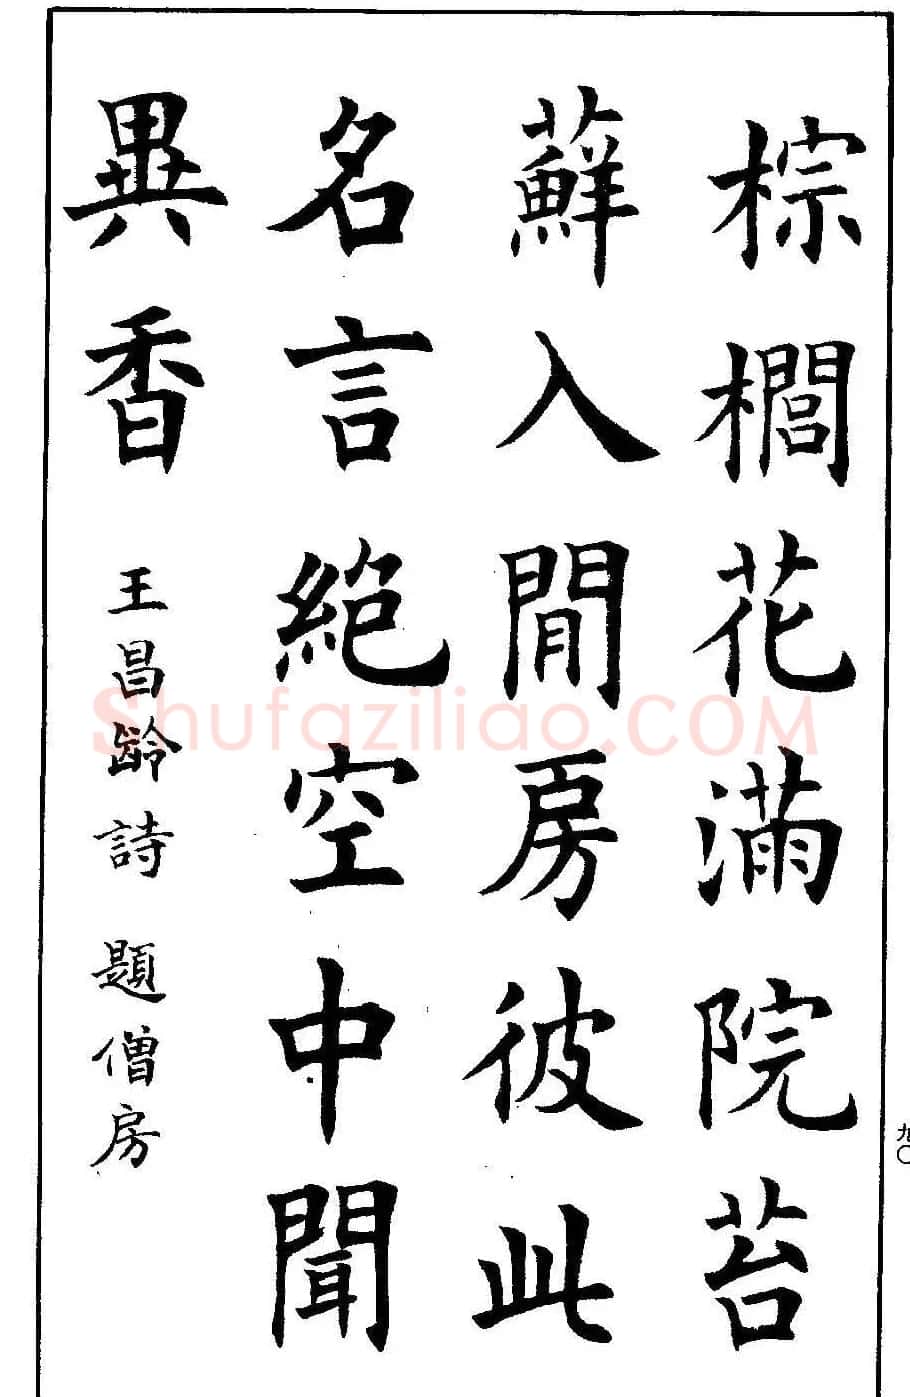 棕櫚花滿院苔
蘚入閒房彼此
名言絶空中聞
異香 王昌齡詩 題僧房
九〇
Shufaziliao.COM